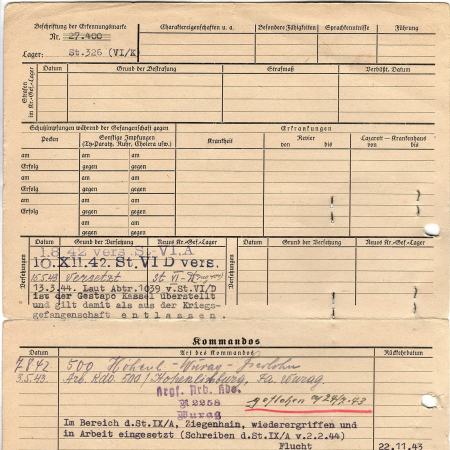 Beschriftung der Erkennungsmarke
Nr. 27.400
Lager: St.326 (VI/K)
Charaktereigenschaften u. a.
Besondere Fähigkeiten
Sprachkenntnisse
Führung
Strafen in Kr.-Gef.-Lager
Datum
Grund der Bestrafung
Strafmaß
Verbüßt, Datum
Schutzimpfungen während der Gefangenschaft gegen
Erkrankungen
Pocken
Sonstige Impfungen
(Ty-Paraty. Ruhr, Cholera usw.)
Krankheit
Revier
von bis
Lazarett — Krankenhaus
von bis
am am
Erfolg gegen
am am
Erfolg gegen
am am
Erfolg gegen
am am
Erfolg gegen
am
gegen
Versetzungen
Datum
Grund der Versetzung
Neues Kr.-Gef.-Lager
Datum
Grund der Versetzung
Neues Kr.-Gef.-Lager
1.8.42 vers. St. VI A
10.XII.42. St. VI D vers.
15.5.43 versetzt St VI-
13.3.44. Laut Abtr.1039 v.St.VI/D
ist der Gestapo Kassel überstellt
und gilt damit als aus der Kriegs-
gefangenschaft entlassen.
Kommandos
Datum
Art des Kommandos
Rückkehrdatum
7.8.42 500 - Wurag - Iserlohn
3.5.43. Arb. Kdo. 500 / Hohenlimburg, Fa. Wurag.
Krgf. Arb. Kdo.
N 2258
Wurag
geflohen 24/7.43
Im Bereich d.St.IX/A, Ziegenhain, wiederergriffen und
in Arbeit eingesetzt (Schreiben d.St.IX/A v.2.2.44)
Flucht 22.11.43